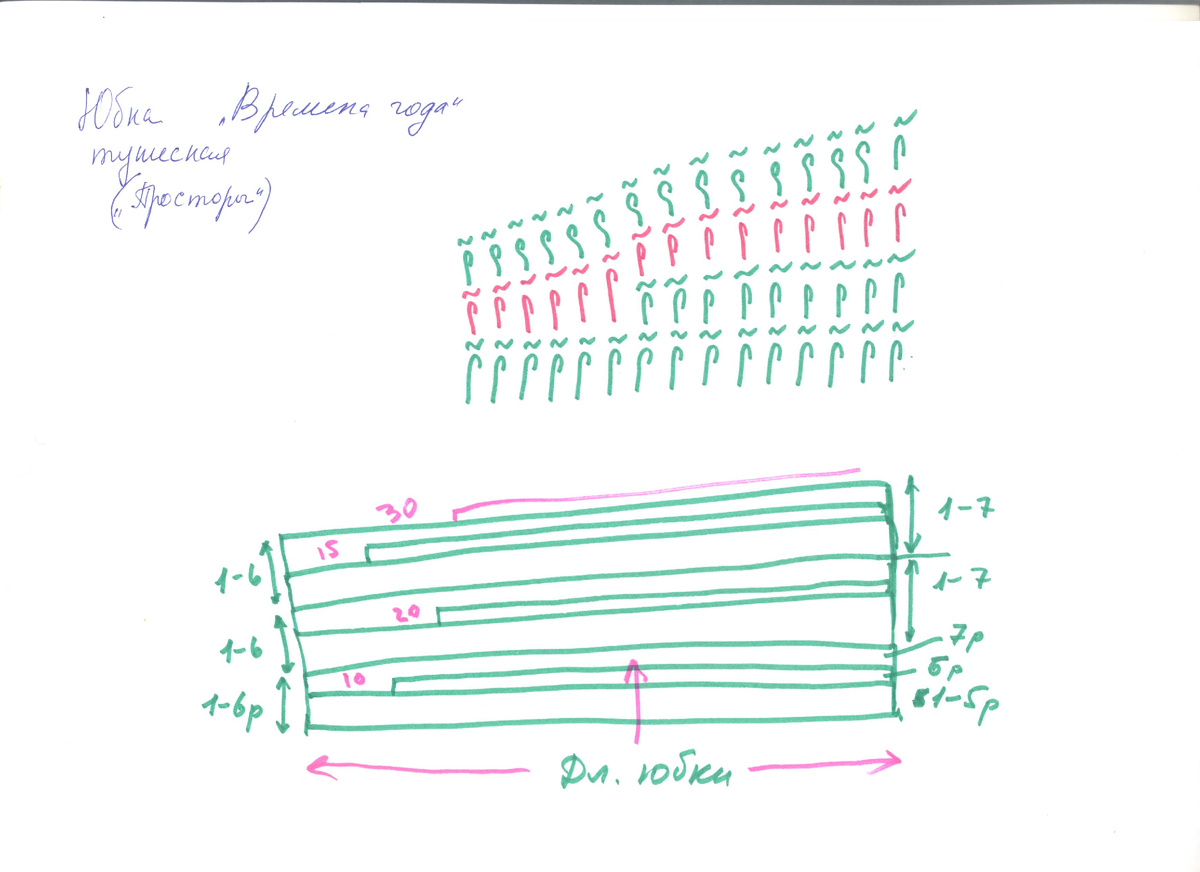 Юбка „Времена года“
тунисская
(„Просторы“)
30
1-7
15
1-6
1-7
20
1-6
7р
10
6р
1-6р
1-5р
Дл. юбки